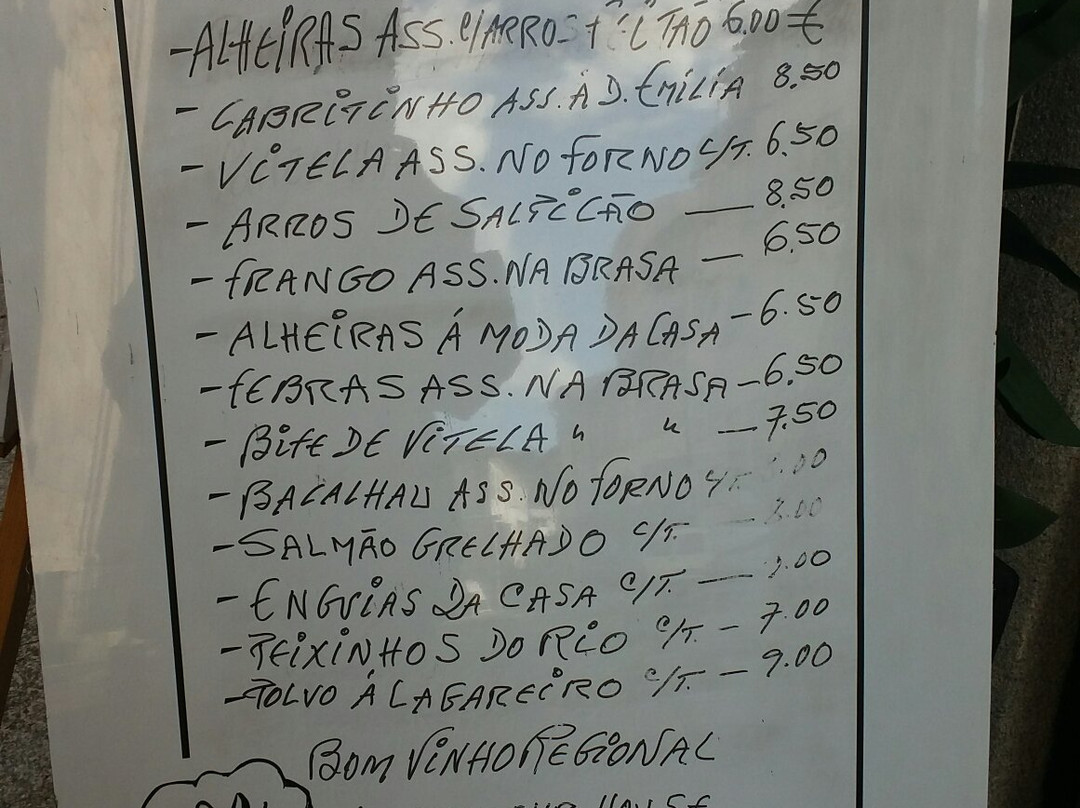 -ALHEIRAS ASS. C/ARROS 6.00 €
- CABRITINHO ASS. Á D. EMÍLIA 8.50
- VITELA ASS. NO FORNO C/T. 6.50
- ARROS DE SALPICÃO — 8.50
- FRANGO ASS. NA BRASA — 6.50
- ALHEIRAS Á MODA DA CASA - 6.50
- FEBRAS ASS. NA BRASA - 6.50
- BIFE DE VITELA " " — 7.50
- BACALHAU ASS. NO FORNO
- SALMÃO GRELHADO C/T. —
- ENGUIAS DA CASA C/T. —
- PEIXINHOS DO RIO C/T. - 7.00
- POLVO Á LAGAREIRO C/T. - 9.00
BOM VINHO REGIONAL